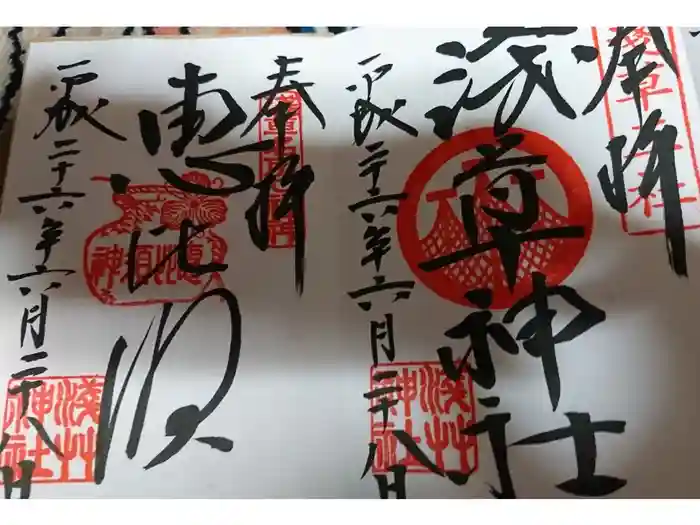 奉拝
浅草神社
平成二十六年六月二十八日
浅草神社
奉拝
恵比須
平成二十六年六月二十八日
恵比須神
浅草神社